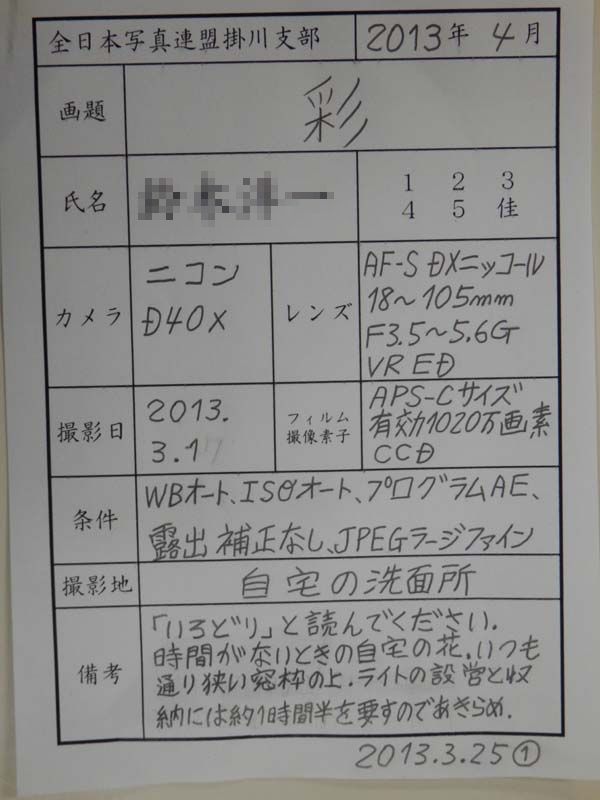 全日本写真連盟掛川支部 2013年 4月
画題 彩
氏名 1 2 3
4 5 佳
カメラ ニコン
D40X
レンズ AF-S DXニッコール
18〜105mm
F3.5〜5.6G
VR ED
撮影日 2013.
3.17
フィルム
撮像素子
APS-Cサイズ
有効1020万画素
CCD
条件 WBオート、ISOオート、プログラムAE、
露出補正なし、JPEGラージファイン
撮影地 自宅の洗面所
備考 「いろどり」と読んでください.
時間がないときの自宅の花.いつも
通り狭い窓枠の上.ライトの設営と収
納には約1時間半を要すのであきらめ.
2013.3.25①